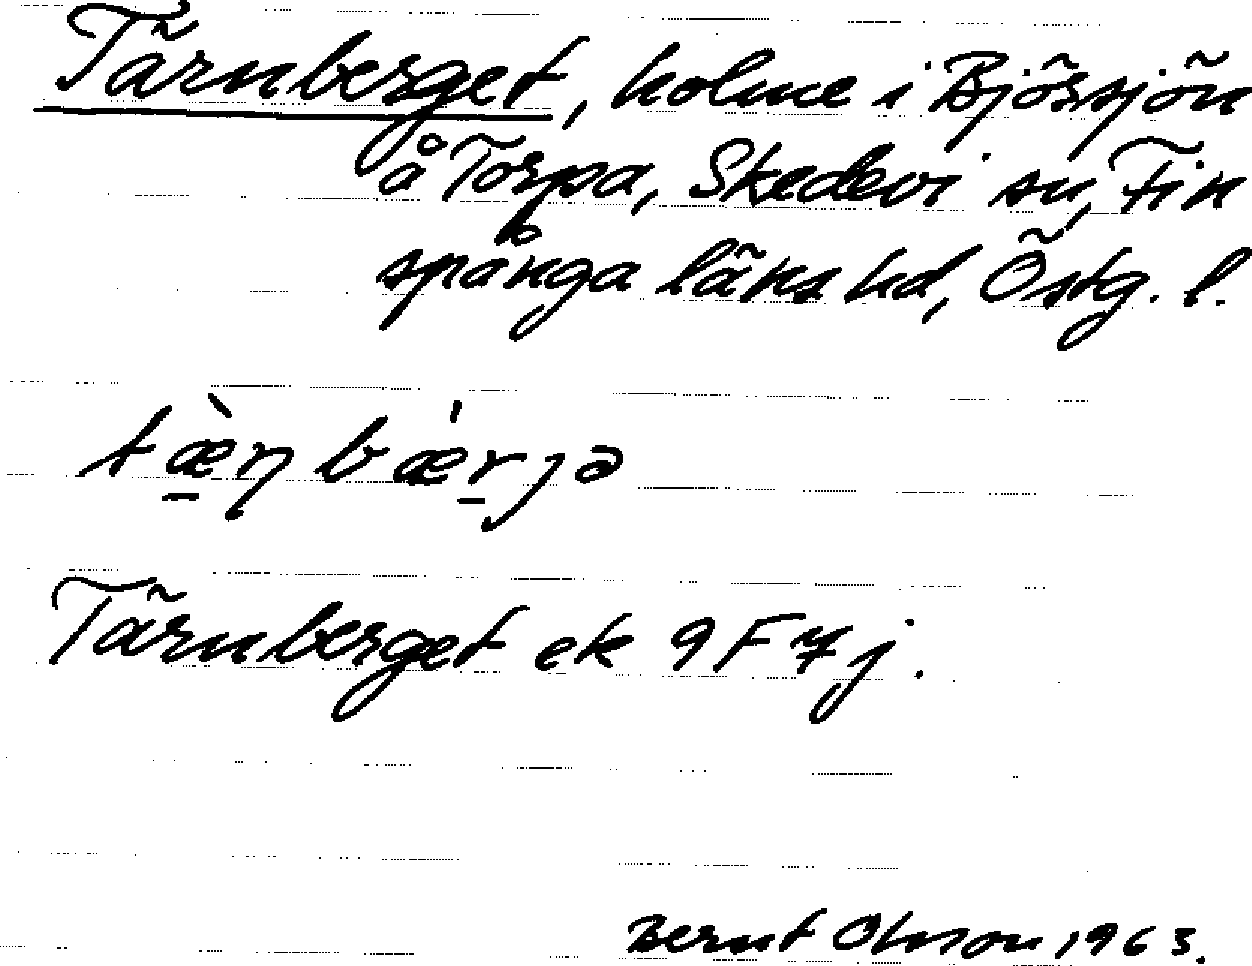 Tärnberget, holme i Björsjön
å Torpa, Skedevi sn, Fin
spånga läns hd, Östg. l.
tæ̀ɳbǽrjə
Tärnberget ek 9F7j.
Bernt Olsson 1963.